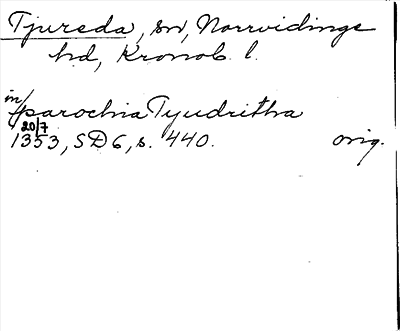 Tjureda, sn, Norrvidinge
hd, Kronob. l.
in/
parochia Tyudritha
20/7
1353, SD 6, s. 440. orig.